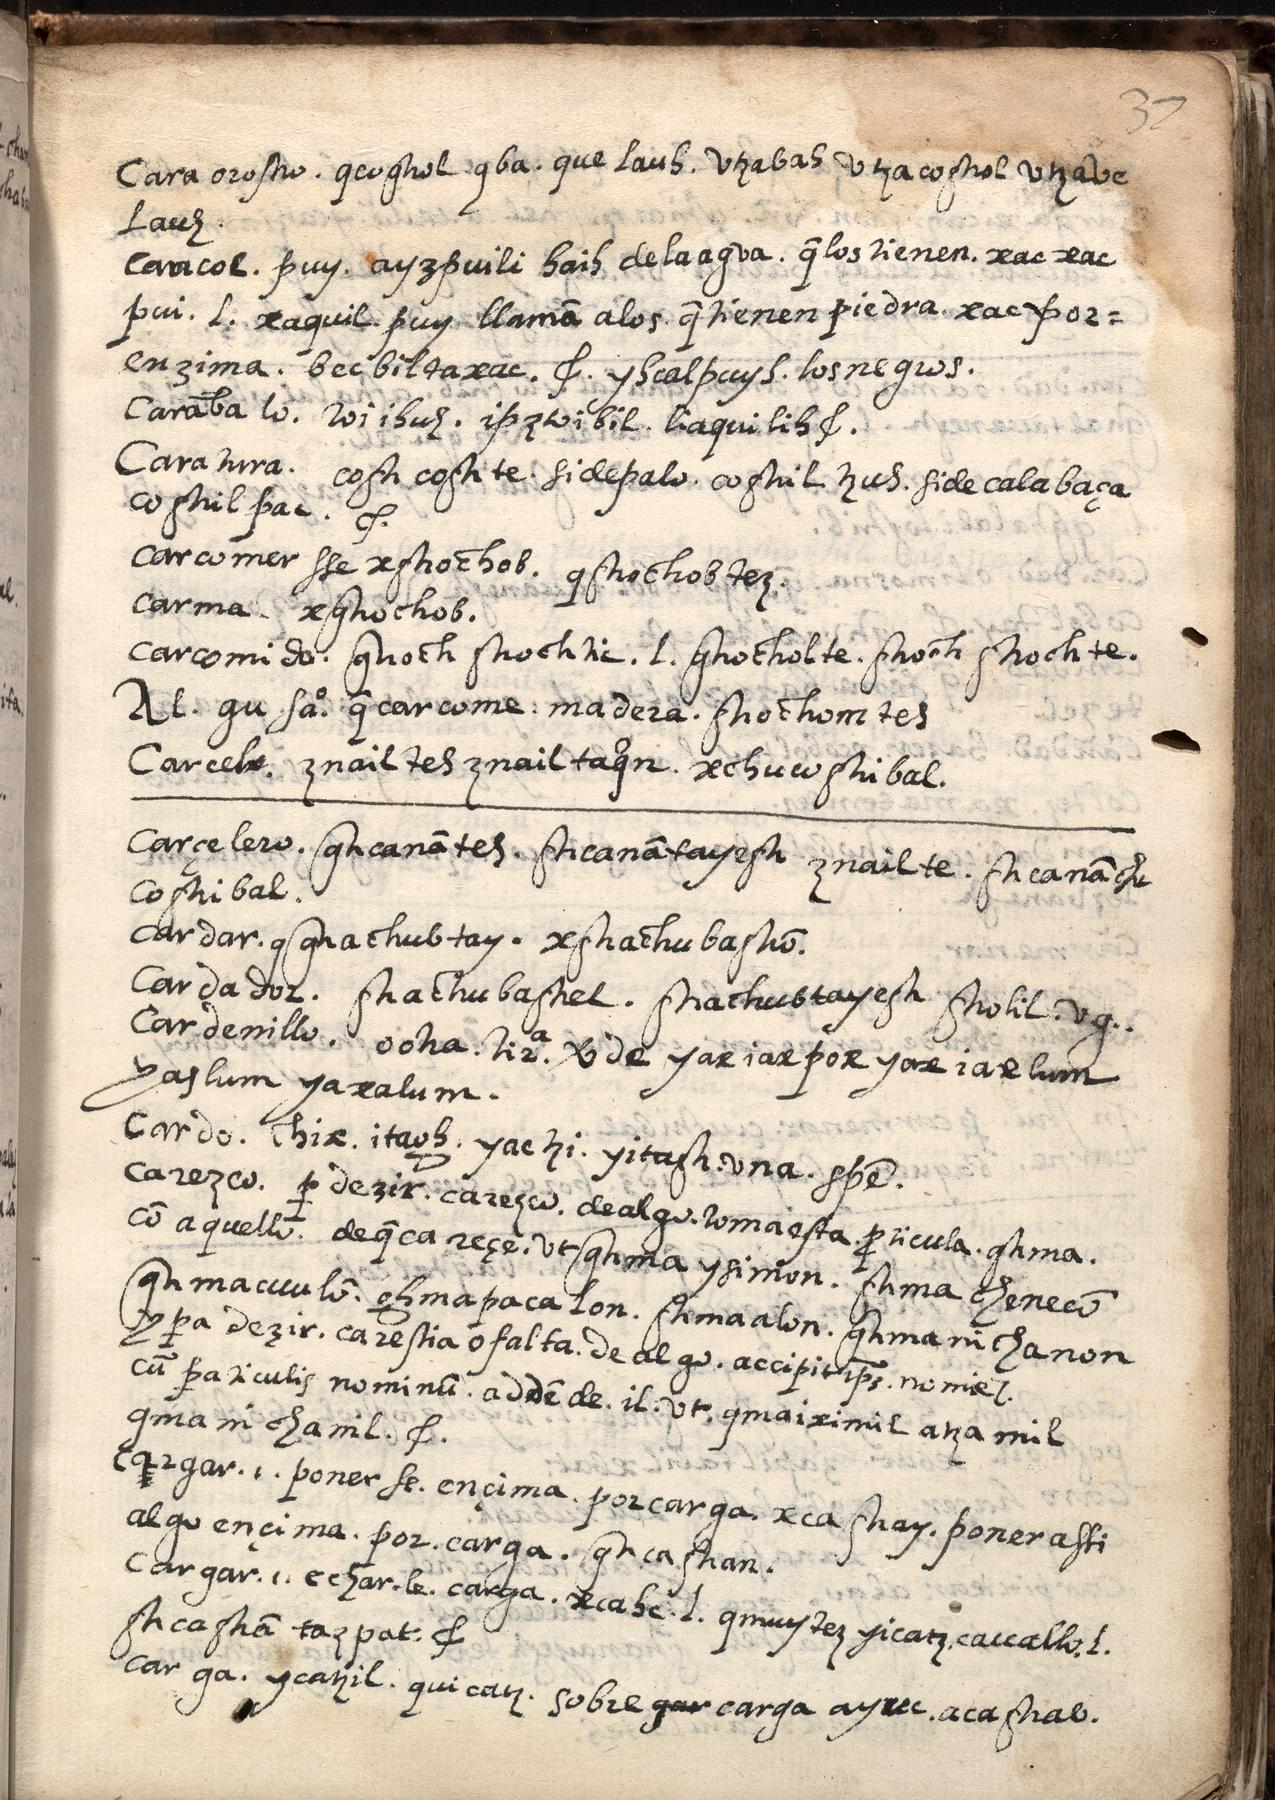 37
Cara orostro. qcoghol qba. que lauh. vtzabah vtzacoghol vtzave
lauh.
Caracol. puy. ayzpuili haih dela agua. q̃ los tienen. xac xac
pui. l. xaquil puy llamã alos q̃ tienen piedra. xac por=
enzima. becbiltaxac. ꝭ. yhcalpuyh. los negros.
Carãbalo.
Caratura. cogh coghte. side palo. coghil tzuh. side calabaça
coghil pac. ꝭ.
carcomer sse xghochob. qghochobtez.
carma. xghochob.
carcomido. ghoch ghochtic. l. ghocholte. ghoch ghochte.
Al. gusaº. q̃ carcome. madera. ghochomteh
Carcel. znailteh znailtaqͦn. xchucoghibal.
Carçelero. ghcanãteh. ghcanãtayegh znailte. ghcanã chu
coghibal.
Cardar. qghachubtay. xghachubaghõ.
Cardador. ghachubaghel. ghachubtayegh gholil. vg..
Cardenillo. ooha. tirª. vde yax iax pox yax iax lum
yaslum yaxalum.
Cardo. chix. itagh. yac tzi. yitagh. vna. spẽ.
carezco. p̱ dezir. carezco. de algo. toma esta p̱ticula. ghma.
cõ aquello. de q̃ careçe. vt ghma ysimon. ghma chenecõ
ghmacuulõ. ghmapacalon. ghmaalon. ghmanichanon
y p̱a dezir. carestia o falta. de algo. accipit ip̃s. nomiẽ.
cũ paticulis nominũ. addẽde. il. vt. qmaiximil atzamil
qmanichanil. ꝭ.
cargar. i. ponerse. ençima. por carga. xcaghay. poner assi
algo ençima. por. carga. ghcaghan.
Cargar. i. echar.le. carga. xcahc. l. qmuytez yicatz. cauallo. l.
ghcaghã tazpat. ꝭ
carga. ycatzil. quicatz. sobre carga ayuc. acaghab.